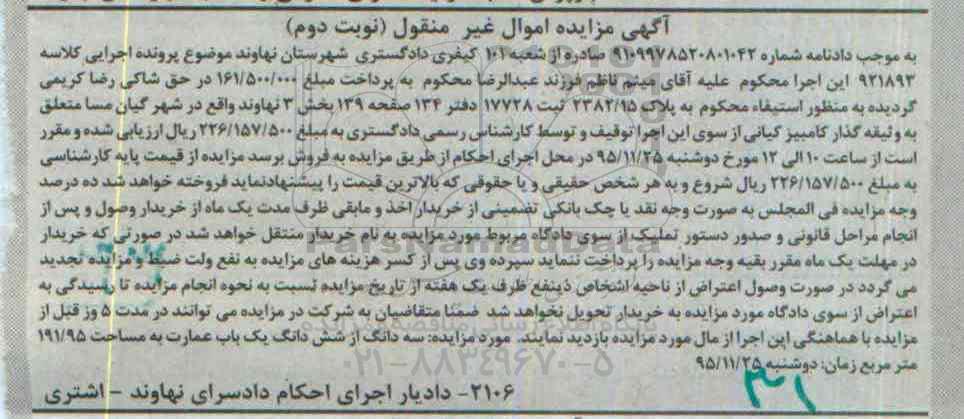 آگهی مزایده اموال غیر منقول (نوبت دوم)
به موجب دادنامه شماره ۹۱۰۹۹۷۸۵۲۰۸۰۱۰۴۲ صادره از شعبه ۱۰۱ کیفری دادگستری شهرستان نهاوند موضوع پرونده اجرایی کلاسه
۹۲۱۸۹۳ این اجرا محکوم علیه آقای میثم ناظم فرزند عبدالرضا محکوم به پرداخت مبلغ ۱۶۱/۵۰۰/۰۰۰ در حق شاکی رضا کریمی
گردیده به منظور استیفاء محکوم به پلاک ۲۳۸۲/۱۵ ثبت ۱۷۷۲۸ دفتر ۱۳۴ صفحه ۱۳۹ بخش ۳ نهاوند واقع در شهر گیان مسا متعلق
به وثیقه گذار کامبیز کیانی از سوی این اجرا توقیف و توسط کارشناس رسمی دادگستری به مبلغ ۲۲۶/۱۵۷/۵۰۰ ریال ارزیابی شده و مقرر
است از ساعت ۱۰ الی ۱۲ مورخ دوشنبه ۹۵/۱۱/۲۵ در محل اجرای احکام از طریق مزایده به فروش برسد مزایده از قیمت پایه کارشناسی
به مبلغ ۲۲۶/۱۵۷/۵۰۰ ریال شروع و به هر شخص حقیقی و یا حقوقی که بالاترین قیمت را پیشنهادنماید فروخته خواهد شد ده درصد
وجه مزایده فی المجلس به صورت وجه نقد یا چک بانکی تضمینی از خریدار اخذ و مابقی ظرف مدت یک ماه از خریدار وصول و پس از
انجام مراحل قانونی و صدور دستور تملیک از سوی دادگاه مربوط مورد مزایده به نام خریدار منتقل خواهد شد در صورتی که خریدار
در مهلت یک ماه مقرر بقیه وجه مزایده را پرداخت ننماید سپرده وی پس از کسر هزینه های مزایده به نفع ولت ضبط و مزایده تجدید
می گردد در صورت وصول اعتراض از ناحیه اشخاص ذینفع ظرف یک هفته از تاریخ مزایده نسبت به نحوه انجام مزایده تا رسیدگی به
اعتراض از سوی دادگاه مورد مزایده به خریدار تحویل نخواهد شد ضمنا متقاضیان به شرکت در مزایده می توانند در مدت ۵ وز قبل از
مزایده با هماهنگی این اجرا از مال مورد مزایده بازدید نمایند. مورد مزایده: سه دانگ از شش دانگ یک باب عمارت به مساحت ۱۹۱/۹۵
متر مربع زمان: دوشنبه ۹۵/۱۱/۲۵
۲۱۰۶- دادیار اجرای احکام دادسرای نهاوند - اشتری
ParsNamadData
۰۲۱-۸۸۳۴۹۶۷۰-۵